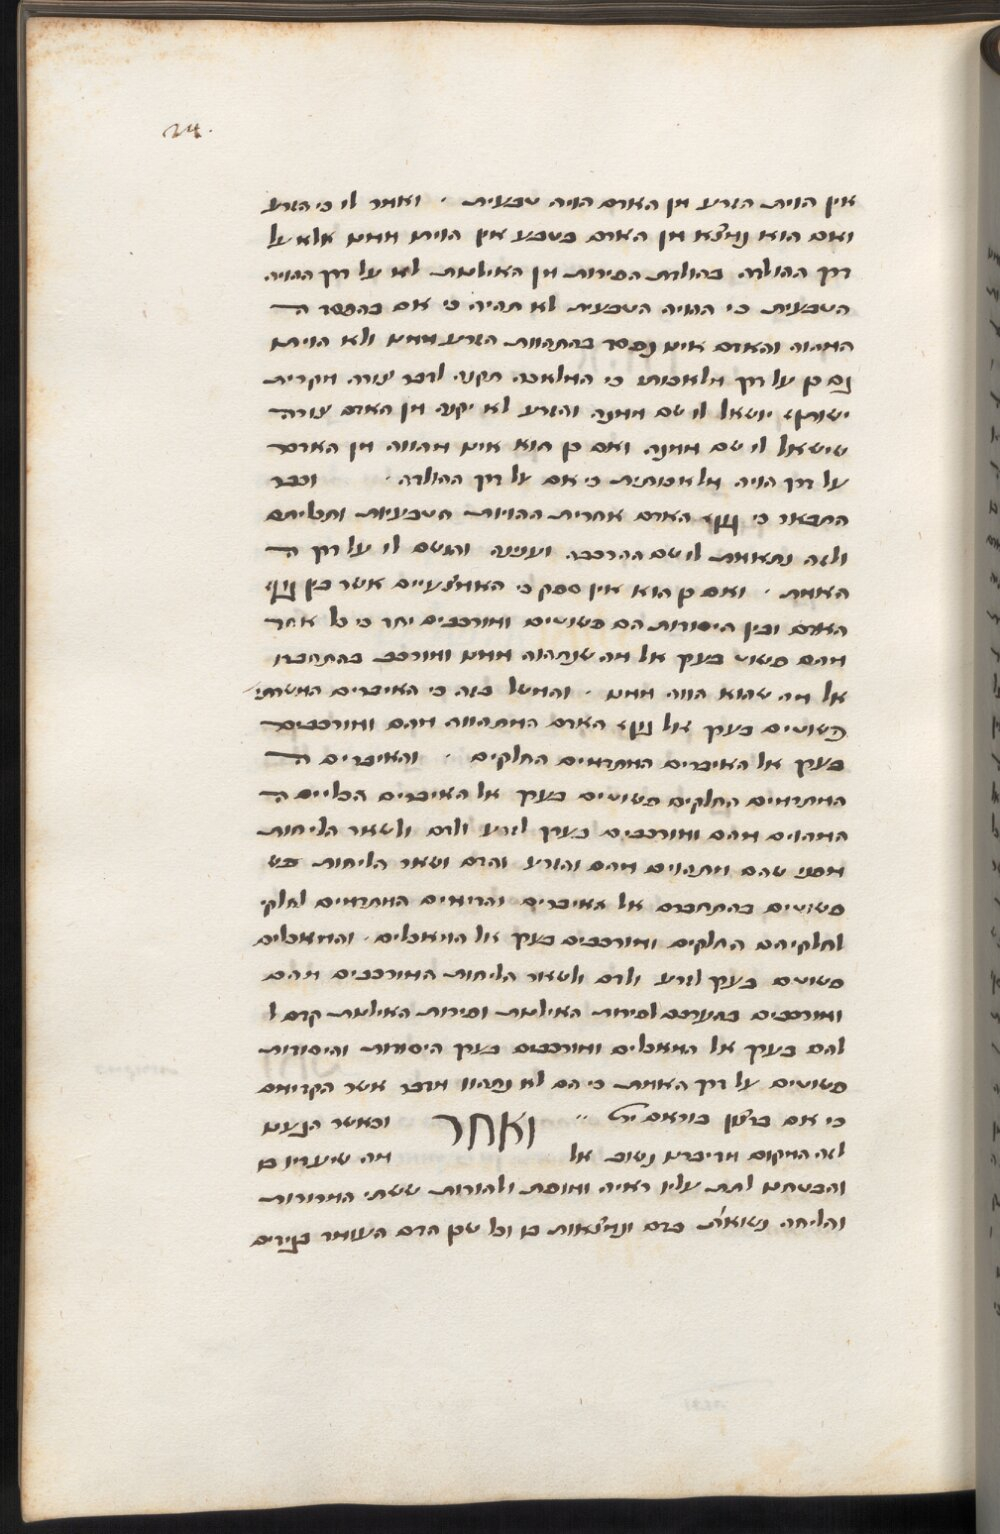 24.
אין הוית הזרע מן האדם הויה טבעית · ואמר לו כי הזרע
ואם הוא נמצא מן האדם בטבע אין הויתו ממנו אלא על
דרך ההולדה כהולדת הפירות מן האילנות לא על דרך ההויה
הטבעית כי ההויה הטבעית לא תהיה כי אם בהפסד ה
המהוה והאדם אינו נפסד בהתהוות הזרע ממנו ולא הויתו
גם כן על דרך מלאכותו כי המלאכה תקנה לדבר צורה מקרית
יושאל לו שם ממנה והזרע לא יקנה מן האדם צורה
שישאל לו שם ממנה ואם כן הוא אינו מהווה מן האדם
על דרך הויה מלאכותית כי אם על דרך ההולדה · וכבר
התבאר כי גוף האדם אחרית ההויות הטבעיות ותכליתם
ולזה נתאמת לו שם ההרכבה וענינה והגשם לו על דרך ה
האמת · ואם כן הוא אין ספק כי האמצעיים אשר בין גוף
האדם ובין היסודות הם פשוטים ומורכבים יחד כי כל אחד
מהם פשוט בערך אל מה שנתהוה ממנו ומורכב בהתחברו
אל מה שהוא הווה ממנו · והמשל בזה כי האיברים
פשוטים בערך אל גוף האדם המתהווה מהם ומורכבים
בערך אל האיברים המתדמים החלקים · והאיברים ה
המתדמים החלקים פשוטים בערך אל האיברים הכליים ה
המהוים מהם ומורכבים בערך לזרע ולדם ולשאר הליחות
מפני שהם יתהוים מהם והזרע והדם ושאר הליחות פש
פשוטים בהתחברם אל האיברים המתדמים לחלקי
לחלקיהם החלקים ומורכבים בערך אל המאכלים · והמאכלים
פשוטים בערך לזרע ולדם ולשאר הליחות המורכבים מהם
ומורכבים בהערכם לפירות האילנות ופירות האילנות קדם ל
להם בערך אל המאכלים ומורכבים בערך היסודות והיסודות
פשוטים על דרך האמת כי הם לא נתהוו מדבר אשר הקדימם
כי אם ברצון בוראם ית׳ ·· ואחר וכאשר הגענו
לזה המקום מדיברנו נשוב אל מה שיעדינו בו
והבטחנו לתת עליו ראיה ומופת ולהורות ששתי המרורות
והליחה נשואות בדם ונמצאות בו וכל שכן הדם העומד בגידים